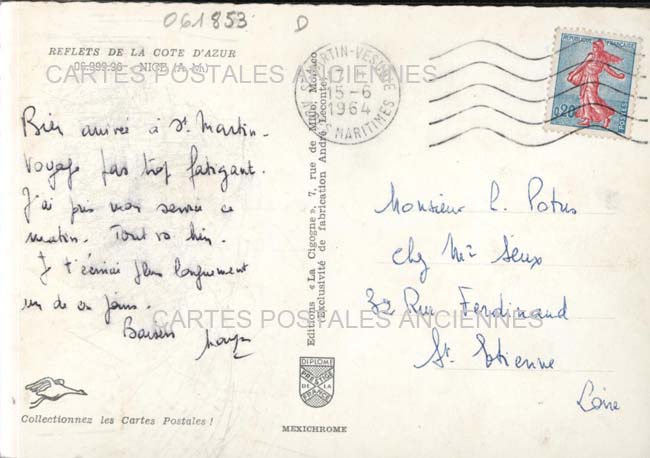 061853
D
REFLETS DE LA COTE D'AZUR
06.999.96 - NICE (A.-M.)
CARTES POSTALES ANCIENNES
Bien arrivée à St. Martin.
Voyage pas trop fatigant.
J'ai pris mon service ce
matin. Tout va bien.
Je t'écrirai plus longuement
un de ces jours.
Baisers
Collectionnez les Cartes Postales !
Editions « La Cigogne », 7, rue de Millo, Monaco
Exclusivité de fabrication André Leconte
DIPLOME
PRESTIGE
DE LA
FRANCE
MEXICHROME
ST MARTIN-VESUBIE
15-6
1964
MARITIMES
REPUBLIQUE FRANÇAISE
0,20
POSTES
Monsieur L. Potus
chez Mr
32 Rue Ferdinand
St. Etienne
Loire
CARTES POSTALES ANCIENNES